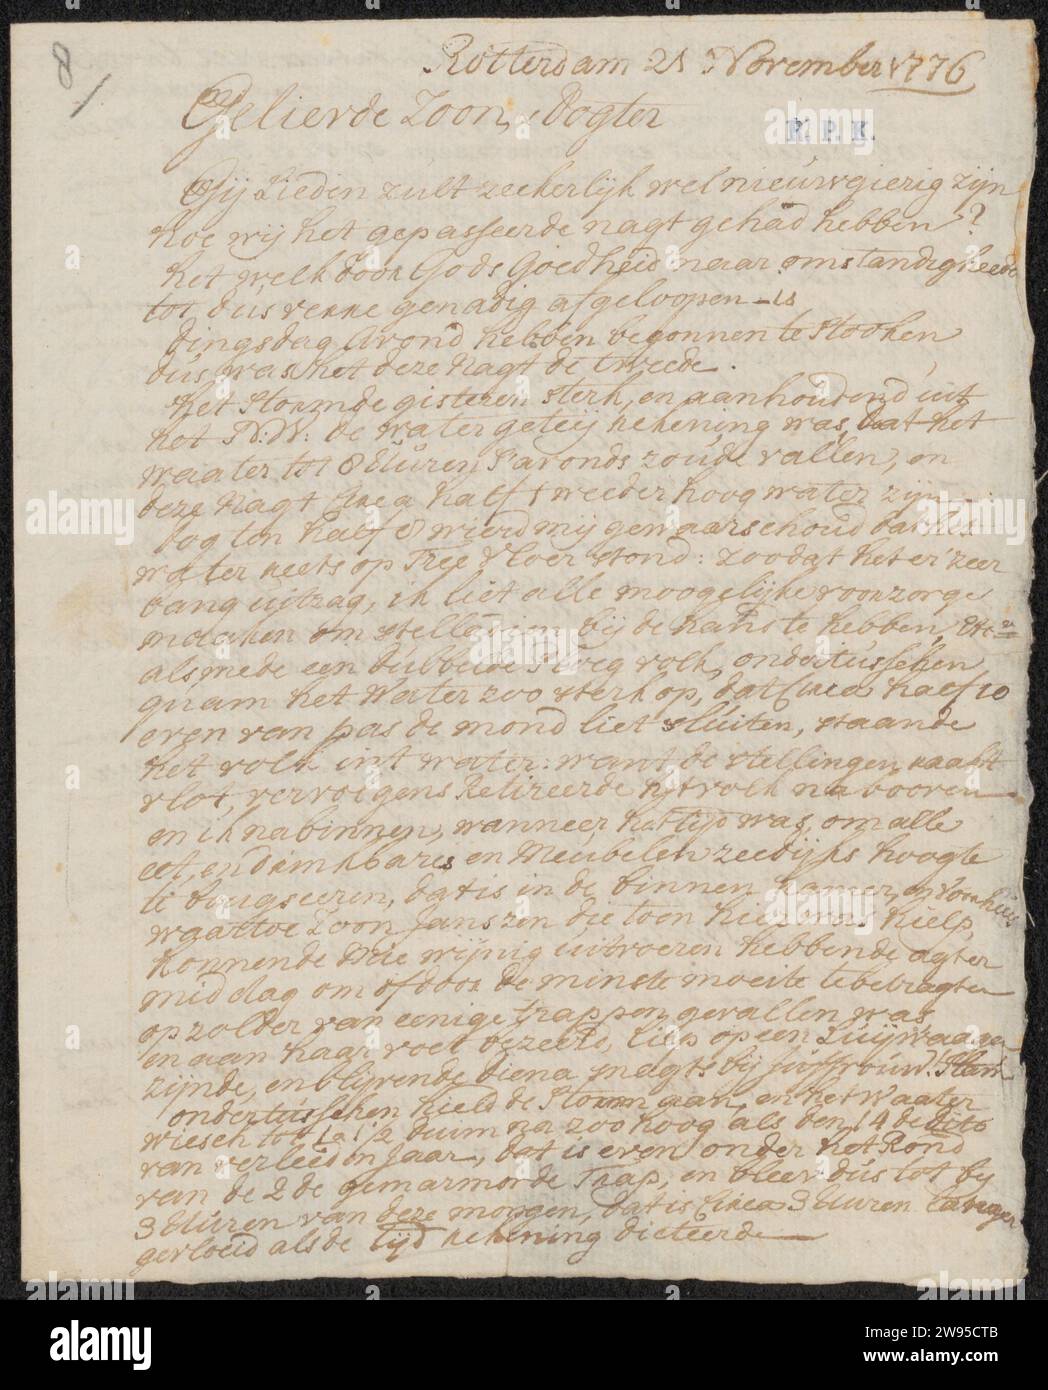 8/
Rotterdam 21 November 1776
Geliefde Zoon, Dogter
R. P. K.
Gij Lieden zult zeekerlijk wel nieuwgierig zijn
hoe wij het gepasseerde nagt gehad hebben?
het welk door Gods Goedheid naar omstandigheede
tot dus verre genadig afgeloopen is
dingsdag Avond hebben begonnen te stooken
dus was het deze Nagt de tweede.
Het stormde gisteren sterk, en aanhoudend uit
het N:W: de watergeteij rekening was, dat het
waater tot 8 Uuren s'avonds zoude vallen, en
deze Nagt Circa half tweeder hoog water zijn
dog ten half 8 wierd mij gewaarschoud dat het
water reets op Tree Vloer stond: zoodat het er zeer
bang uitzag, ik liet alle moogelijke voorzorge
maaken om stellingen bij de hand te hebben, Etc
alsmede een dubbelde Ploeg volk, ondertusschen
quam het Water zoo sterk op, dat Circa half 10
even van pas de mond liet sluiten, staande
het volk in't water: want de stellingen raakt
vlot, vervolgens Retireerde het volk na vooren
en ik na binnen, wanneer het tijd was, om alle
eet, en drinkbares en Meubelen zeedijks hoogte
te bougseeren, dat is in de binnen kamer, en voorhuis
waar toe Zoon Janszen die toen hier was hielp,
konnende Mie wijnig uitvoeren hebbende agter
middag om of door de minste moeite te betragten
op zolder van eenige trappen gevallen was
en aan haar voet bezeerd, liep op een Luijwaagen
zijnde, en blijvende diena nagts bij Juffrouw
ondertusschen hield de Storm aan, en het Waater
wiesch tot 1 a 1½ duim na zoo hoog als den 14 de dito
van verleeden Jaar, dat is even onder het Rond
van de 2de gemarmorde Trap, en bleef dus tot bij
3 Uuren van deze morgen, dat is Circa 3 Uuren langer
gevloeid als de tijd rekening dicteerde
alamy
a
alamy
Image ID: 2W95CTB
www.alamy.com